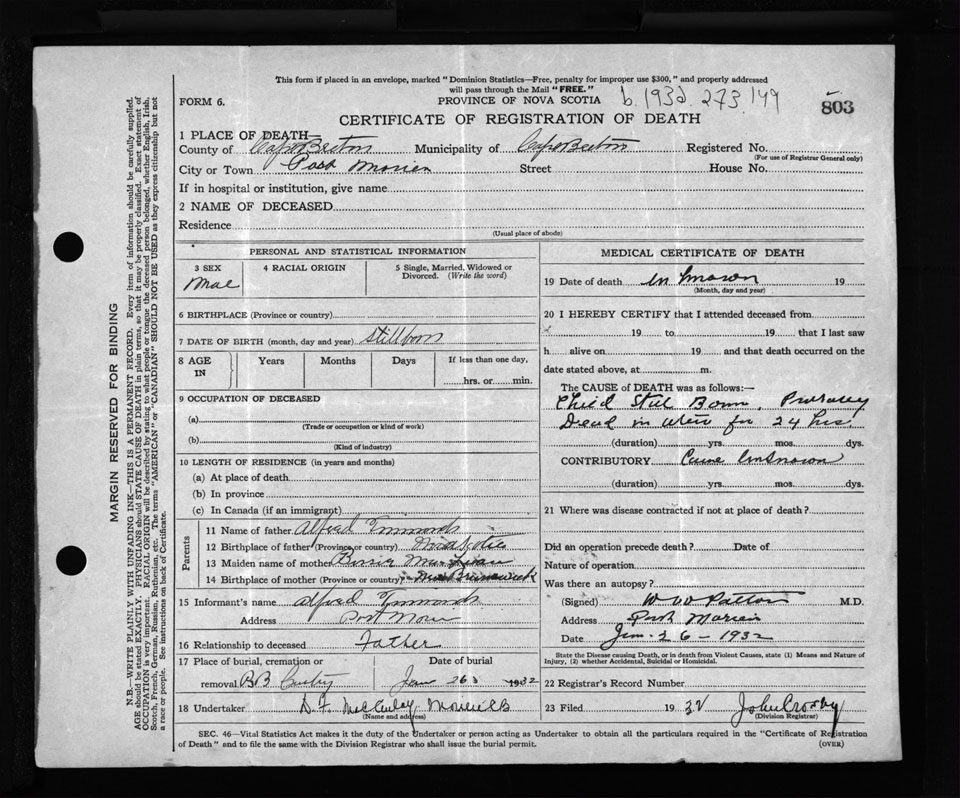 This form if placed in an envelope, marked "Dominion Statistics—Free, penalty for improper use $300," and properly addressed
will pass through the Mail "FREE."
FORM 6.
PROVINCE OF NOVA SCOTIA
b. 1932. 273 149
803
CERTIFICATE OF REGISTRATION OF DEATH
1 PLACE OF DEATH—
County of Cape Breton Municipality of Cape Breton Registered No.
(For use of Registrar General only)
City or Town Port Morien Street House No.
If in hospital or institution, give name
2 NAME OF DECEASED
Residence
(Usual place of abode)
PERSONAL AND STATISTICAL INFORMATION
3 SEX 4 RACIAL ORIGIN 5 Single, Married, Widowed or Divorced. (Write the word)
Mae
6 BIRTHPLACE (Province or country)
7 DATE OF BIRTH (month, day and year) Stillborn
8 AGE IN Years Months Days If less than one day,
hrs. or min.
9 OCCUPATION OF DECEASED
(a)
(Trade or occupation or kind of work)
(b)
(Kind of industry)
10 LENGTH OF RESIDENCE (in years and months)
(a) At place of death
(b) In province
(c) In Canada (if an immigrant)
Parents
11 Name of father Alfred
12 Birthplace of father (Province or country) Nova Scotia
13 Maiden name of mother
14 Birthplace of mother (Province or country) New Brunswick
15 Informant's name Alfred
Address Port Morien
16 Relationship to deceased Father
17 Place of burial, cremation or Date of burial
removal BB Jan 26 1932
18 Undertaker D. F. McAulay
(Name and address)
MEDICAL CERTIFICATE OF DEATH
19 Date of death Unknown 19
(Month, day and year)
20 I HEREBY CERTIFY that I attended deceased from
19 to 19 that I last saw
h alive on 19 and that death occurred on the
date stated above, at m.
The CAUSE of DEATH was as follows:—
Child Still Born, Probably
Dead in utero for 24 hrs
(duration) yrs. mos. dys.
CONTRIBUTORY Cause Unknown
(duration) yrs. mos. dys.
21 Where was disease contracted if not at place of death?
Did an operation precede death? Date of
Nature of operation
Was there an autopsy?
(Signed) W W Patton M.D.
Address Port Morien
Date Jan - 26 - 1932
State the Disease causing Death, or in death from Violent Causes, state (1) Means and Nature of
Injury, (2) whether Accidental, Suicidal or Homicidal.
22 Registrar's Record Number
23 Filed 19 32 John Crosby
(Division Registrar)
SEC. 46—Vital Statistics Act makes it the duty of the Undertaker or person acting as Undertaker to obtain all the particulars required in the "Certificate of Registration
of Death" and to file the same with the Division Registrar who shall issue the burial permit. (OVER)
MARGIN RESERVED FOR BINDING
N.B.—WRITE PLAINLY WITH UNFADING INK—THIS IS A PERMANENT RECORD. Every item of information should be carefully supplied.
AGE should be stated EXACTLY. PHYSICIANS should STATE CAUSE OF DEATH in plain terms, so that it may be properly classified. Exact statement of
OCCUPATION is very important. RACIAL ORIGIN will be described by stating to what people or tongue the deceased person belonged, whether English, Irish,
Scotch, French, German, Russian, Ruthenian, etc. The terms "AMERICAN" or "CANADIAN" SHOULD NOT BE USED as they express citizenship but not
a race or people. See instructions on back of Certificate.